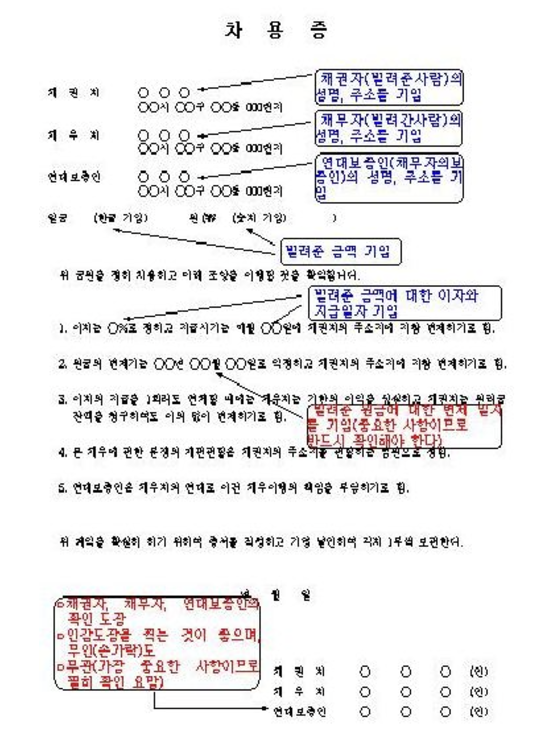 차 용 증
채 권 자 ○ ○ ○
○○시 ○○구 ○○동 000번지
채권자(빌려준사람)의
성명, 주소를 기입
채 무 자 ○ ○ ○
○○시 ○○구 ○○동 000번지
채무자(빌려간사람)의
성명, 주소를 기입
연대보증인 ○ ○ ○
○○시 ○○구 ○○동 000번지
연대보증인(채무자의보
증인)의 성명, 주소를 기
입
일금 (한글 기입) 원(₩ (숫자 기입) )
빌려준 금액 기입
위 금원을 정히 차용하고 아래 조항을 이행할 것을 확인합니다.
빌려준 금액에 대한 이자와
지급일자 기입
1. 이자는 ○%로 정하고 지급시기는 매월 ○○일에 채권자의 주소지에 지참 변제하기로 함.
2. 원금의 변제기는 ○○년 ○○월 ○○일로 약정하고 채권자의 주소지에 지참 변제하기로 함.
3. 이자의 지급을 1회라도 연체할 때에는 채무자는 기한의 이익을 상실하고 채권자는 원리금
잔액을 청구하여도 이의 없이 변제하기로 함.
빌려준 원금에 대한 변제 일자
를 기입(중요한 사항이므로
반드시 확인해야 한다)
4. 본 채무에 관한 분쟁의 재판관할은 채권자의 주소지를 관할하는 법원으로 정함.
5. 연대보증인은 채무자와 연대로 이건 채무이행의 책임을 부담하기로 함.
위 계약을 확실히 하기 위하여 증서를 작성하고 기명 날인하여 각자 1부씩 보관한다.
년 월 일
○채권자, 채무자, 연대보증인의
확인 도장
○인감도장을 찍는 것이 좋으며,
무인(손가락)도
○무관(가장 중요한 사항이므로
필히 확인 요망)
채 권 자 ○ ○ ○ (인)
채 무 자 ○ ○ ○ (인)
연대보증인 ○ ○ ○ (인)